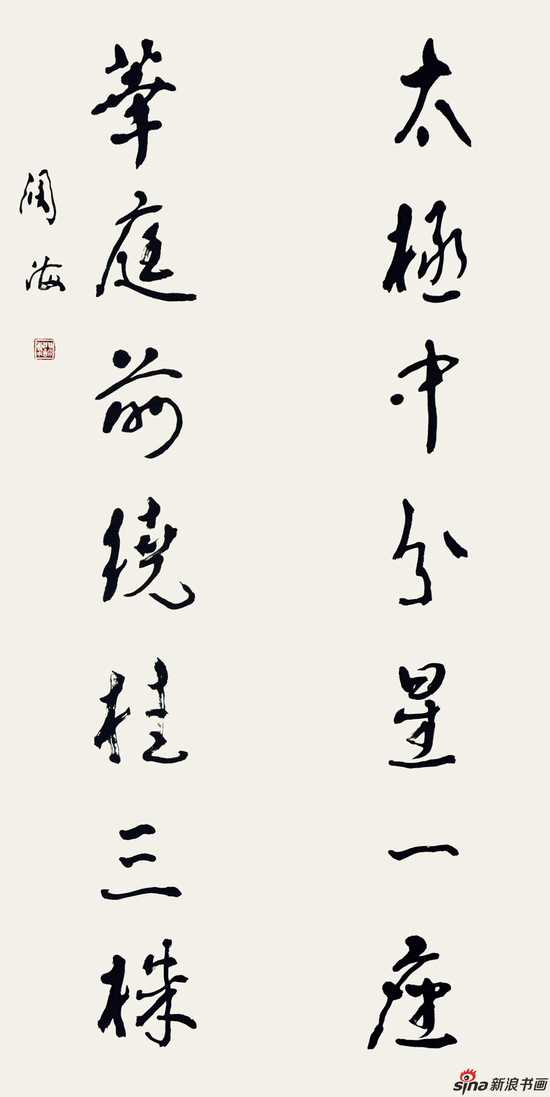 太极中分星一座
华庭前绕桂三株
阔海
sina新浪书画